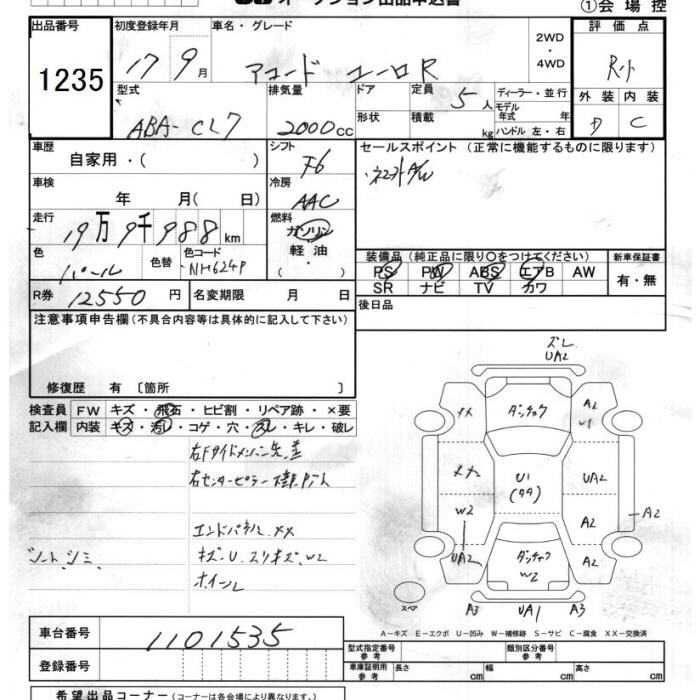 オークション出品申込書
①会場控
出品番号
1235
初度登録年月
17 9 月
車名・グレード
アコード ユーロR
2WD
・
4WD
評価点
型式
ABA-CL7
排気量
2000 cc
ドア
形状
定員
5人
積載
kg
ディーラー・並行
モデル
年式 年
ハンドル 左・右
外装 内装
D C
車歴
自家用・( )
シフト
F6
セールスポイント (正常に機能するものに限ります)
車検
年 月( 日)
冷房
AAC
走行
19万9千988km
燃料
ガソリン
軽油
( ・ )
色
パール
色替
色コード
NH624P
装備品 (純正品に限り○をつけてください)
PS PW ABS エアB AW
SR ナビ TV カワ
新車保証書
有・無
R券 12550 円
名変期限 月 日
後日品
注意事項申告欄 (不具合内容等は具体的に記入して下さい)
修復歴 有 [箇所 ]
検査員
記入欄
FW キズ・飛石・ヒビ割・リペア跡・×要
内装 キズ・汚れ・コゲ・穴・スレ・キレ・破レ
右Fサイドメンバー先歪
エンドパネル XX
シート シミ
キズ・U・スリキズ、W2
ホイール
ズレ
UA2
メナ
W2
UA2
U1
A2
U1
UA2
A2
A2
A2
W2
スペア
A3 UA1 A3
A-キズ E-エクボ U-凹み W-補修跡 S-サビ C-腐食 XX-交換済
車台番号 1101535
登録番号
型式指定番号
参考
類別区分番号
参考
車庫証明用
参考
長さ cm 幅 cm 高さ cm
希望出品コーナー (コーナーは各会場により異なります。)